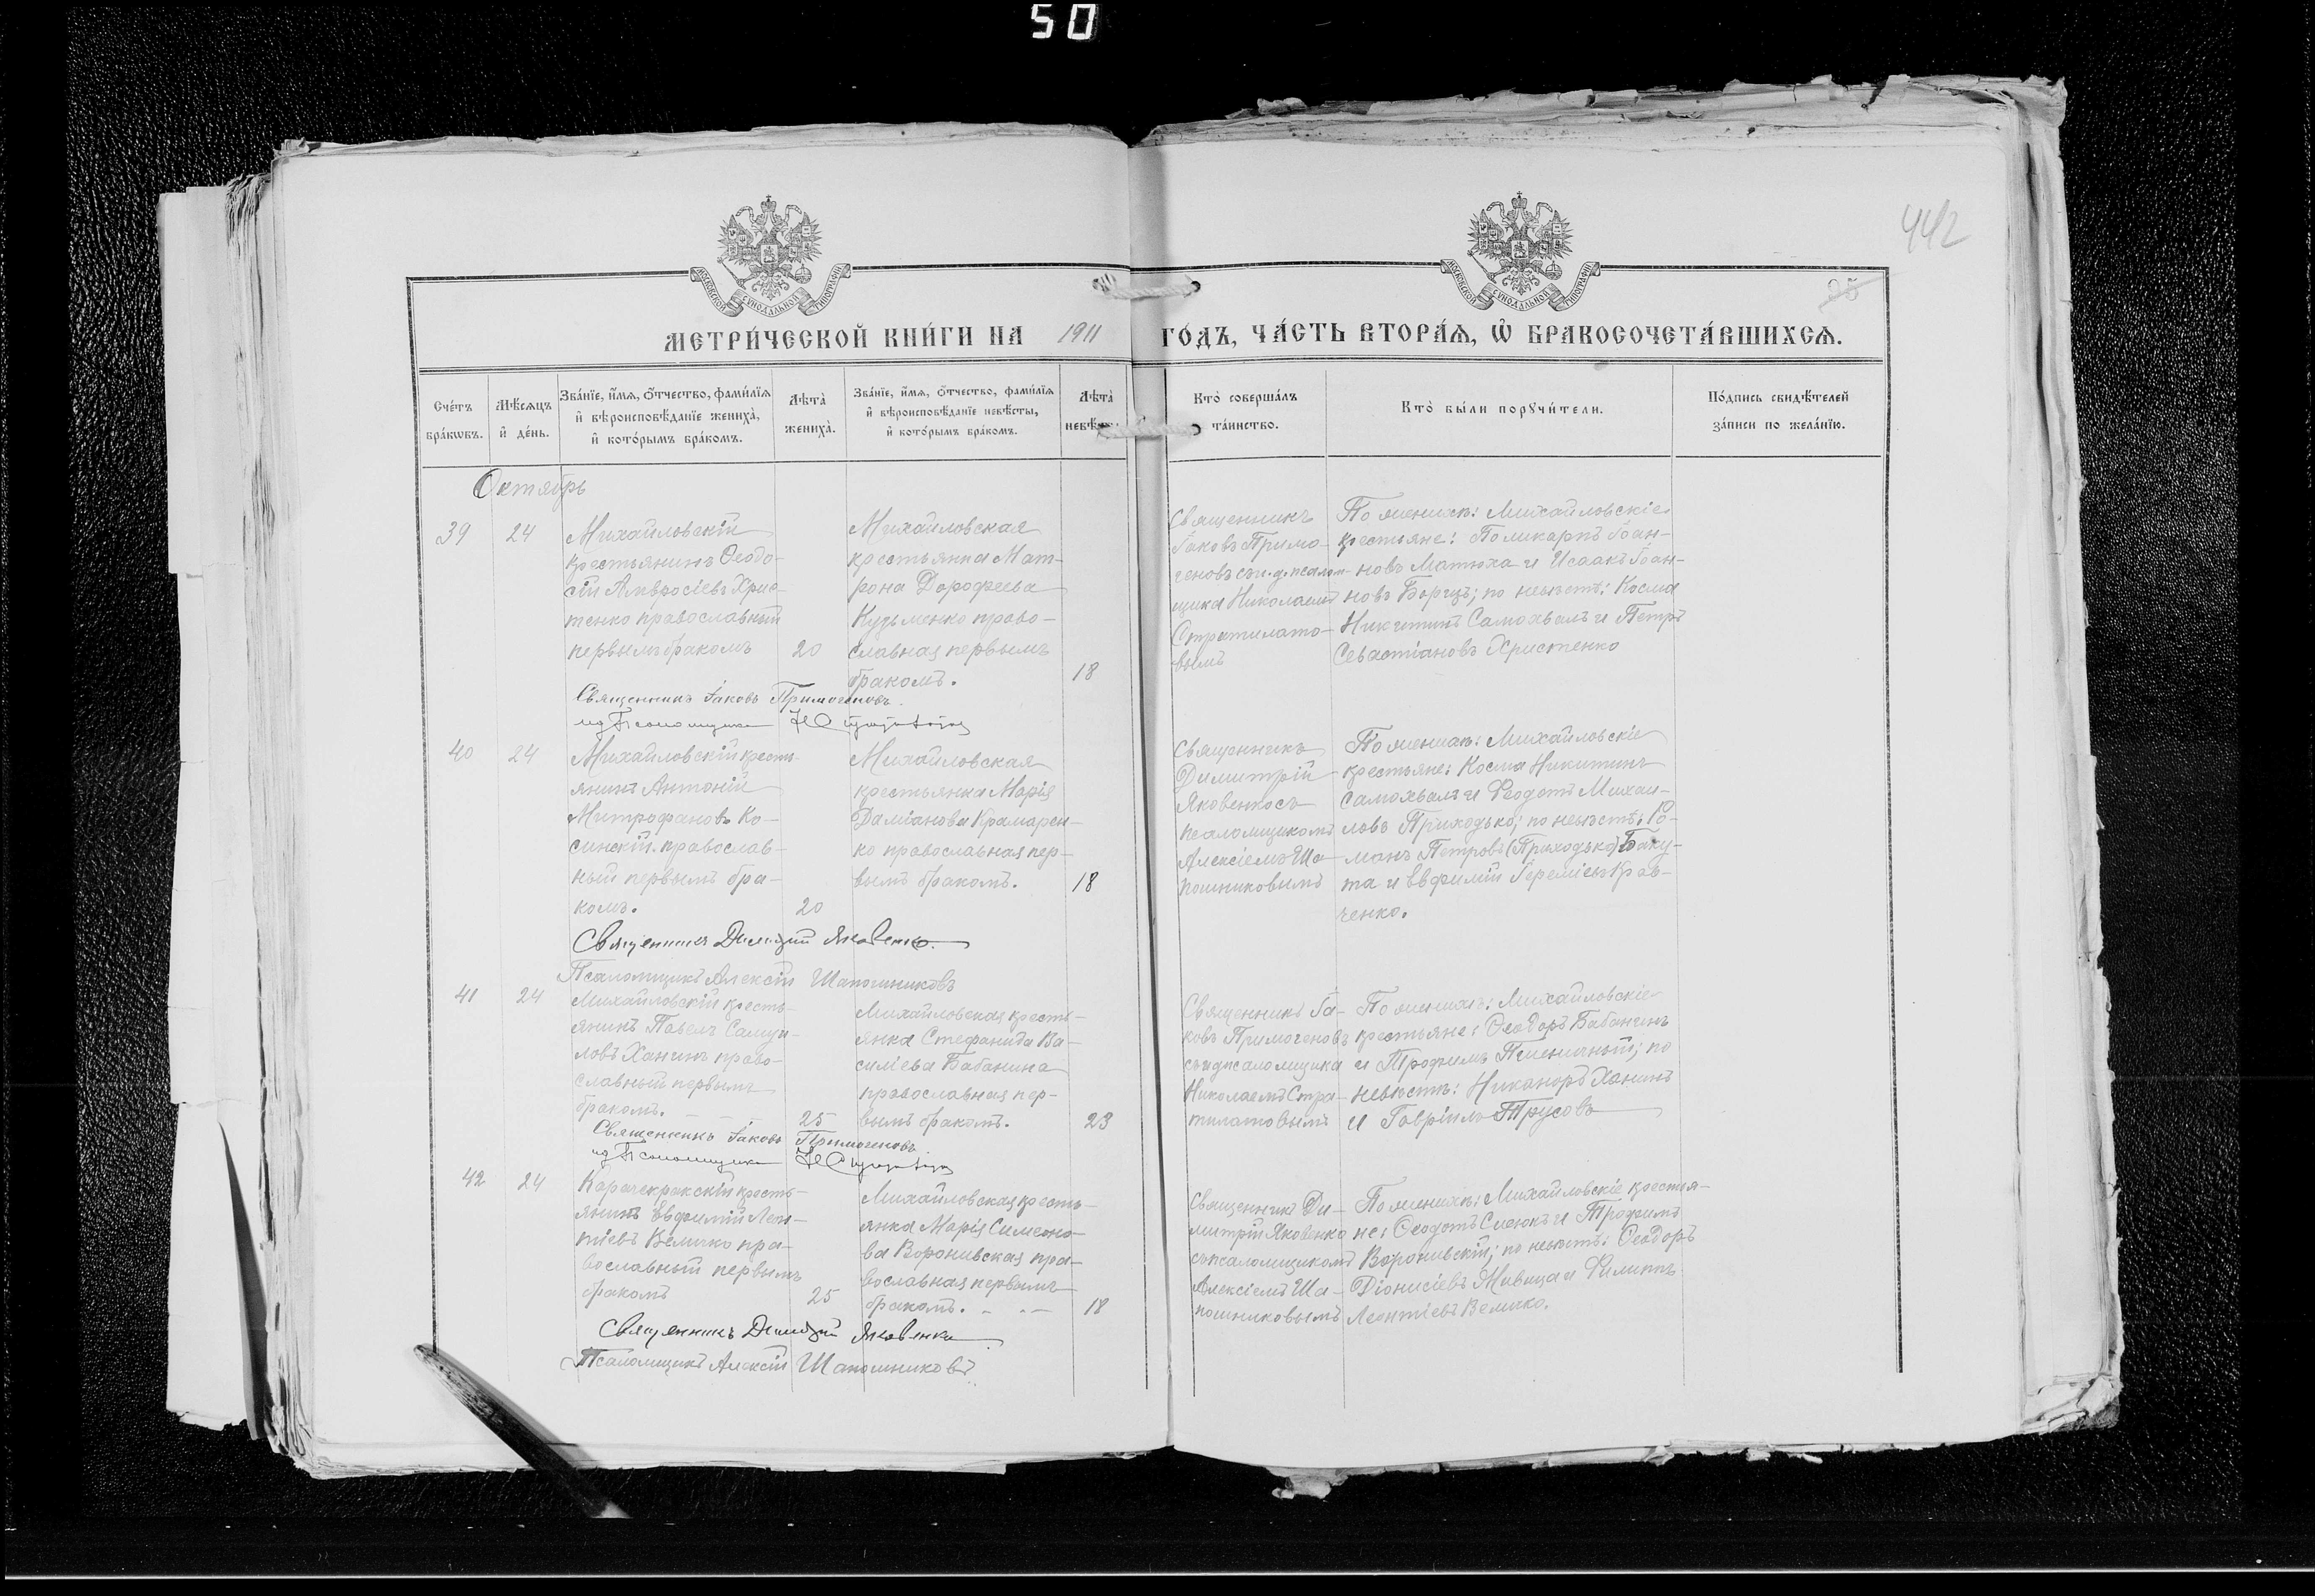 50
442
25
МОСКОВСКОЙ СѴНОДАЛЬНОЙ ТИПОГРАФІИ
МОСКОВСКОЙ СѴНОДАЛЬНОЙ ТИПОГРАФІИ
МЕТРИ́ЧЕСКОЙ КНИ́ГИ НА 1911 ГО́ДЪ, ЧА́СТЬ ВТОРА́Я, Ѡ҆ БРАКОСОЧЕТА́ВШИХСЯ.
Сче́тъ бра́кѡвъ.
Мѣ́сяцъ и҆ де́нь.
Зва́нїе, и҆́мѧ, ѻ҆́тчество, фами́лїѧ и҆ вѣроисповѣ́данїе жениха̀, и҆ кото́рымъ бра́комъ.
Лѣта̀ жениха̀.
Зва́нїе, и҆́мѧ, ѻ҆́тчество, фами́лїѧ и҆ вѣроисповѣ́данїе невѣ́сты, и҆ кото́рымъ бра́комъ.
Лѣта̀
Кто̀ соверша́лъ та́инство.
Кто̀ бы́ли порꙋчи́тели.
По́дпись свидѣ́телей за́писи по жела́нїю.
Октябрь
39
24
Михайловскій
крестьянинъ Ѳеодо-
сій Амвросіевъ Хрис-
тенко православный
первымъ бракомъ
20
Михайловская
крестьянка Мат-
рона Дорофеева
Кузьменко право-
славная первымъ
бракомъ.
18
Священникъ
Іаковъ Примо-
геновъ съ и.д. псалом-
щика Николаемъ
Стратилато-
вымъ
По женихѣ: Михайловскіе
крестьяне: Поликарпъ Іоан-
новъ Матюха и Исаакъ Іоан-
новъ Борецъ; по невѣстѣ: Косма
Никитинъ Самохвалъ и Петръ
Севастіановъ Христенко
Священникъ Іаковъ Примогеновъ
ид Псаломщика
40
24
Михайловскій кресть-
янинъ Антоній
Митрофановъ Ко-
синскій православ-
ный первымъ бра-
комъ.
20
Михайловская
крестьянка Марія
Даміанова Крамарен-
ко православная пер-
вымъ бракомъ.
18
Священникъ
Димитрій
Яковенко съ
псаломщикомъ
Алексіемъ Ша-
пошниковымъ
По женихѣ: Михайловскіе
крестьяне: Косма Никитинъ
Самохвалъ и Ѳеодотъ Михаи-
ловъ Приходько; по невѣстѣ: Ро-
манъ Петровъ (Приходько) Баку-
та и Евфимій Іереміевъ Крав-
ченко.
Священникъ Димитрій Яковенко.
Псаломщикъ Алексій Шапошниковъ
41
24
Михайловскій кресть-
янинъ Павелъ Самуи-
ловъ Ханинъ право-
славный первымъ
бракомъ.
25
Михайловская кресть-
янка Стефанида Ва-
силіева Бабанина
православная пер-
вымъ бракомъ.
23
Священникъ Іа-
ковъ Примогеновъ
съ ид псаломщика
Николаемъ Стра-
тилатовымъ
По женихѣ: Михайловскіе
крестьяне: Ѳеодоръ Бабанинъ
и Трофимъ Пшеничный; по
невѣстѣ: Никаноръ Ханинъ
и Гавріилъ Трусовъ
Священникъ Іаковъ Примогеновъ
ид Псаломщика
42
24
Карачекракскій кресть-
янинъ Евфимій Леон-
тіевъ Величко пра-
вославный первымъ
бракомъ
25
Михайловская кресть-
янка Марія Симеоно-
ва Воронивская пра-
вославная первымъ
бракомъ.
18
Священникъ Ди-
митрій Яковенко
съ псаломщикомъ
Алексіемъ Ша-
пошниковымъ
По женихѣ: Михайловскіе крестья-
не: Ѳеодотъ Сиекъ и Трофимъ
Воронивскій; по невѣстѣ: Ѳеодоръ
Діонисіевъ Живица и Филиппъ
Леонтіевъ Величко.
Священникъ Димитрій Яковенко
Псаломщикъ Алексій Шапошниковъ.